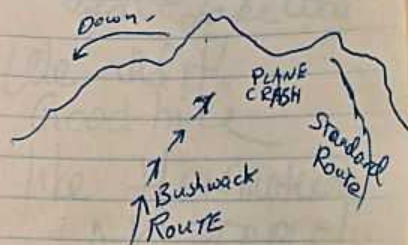 Down.
PLANE
CRASH
Standard
Route
Bushwack
ROUTE